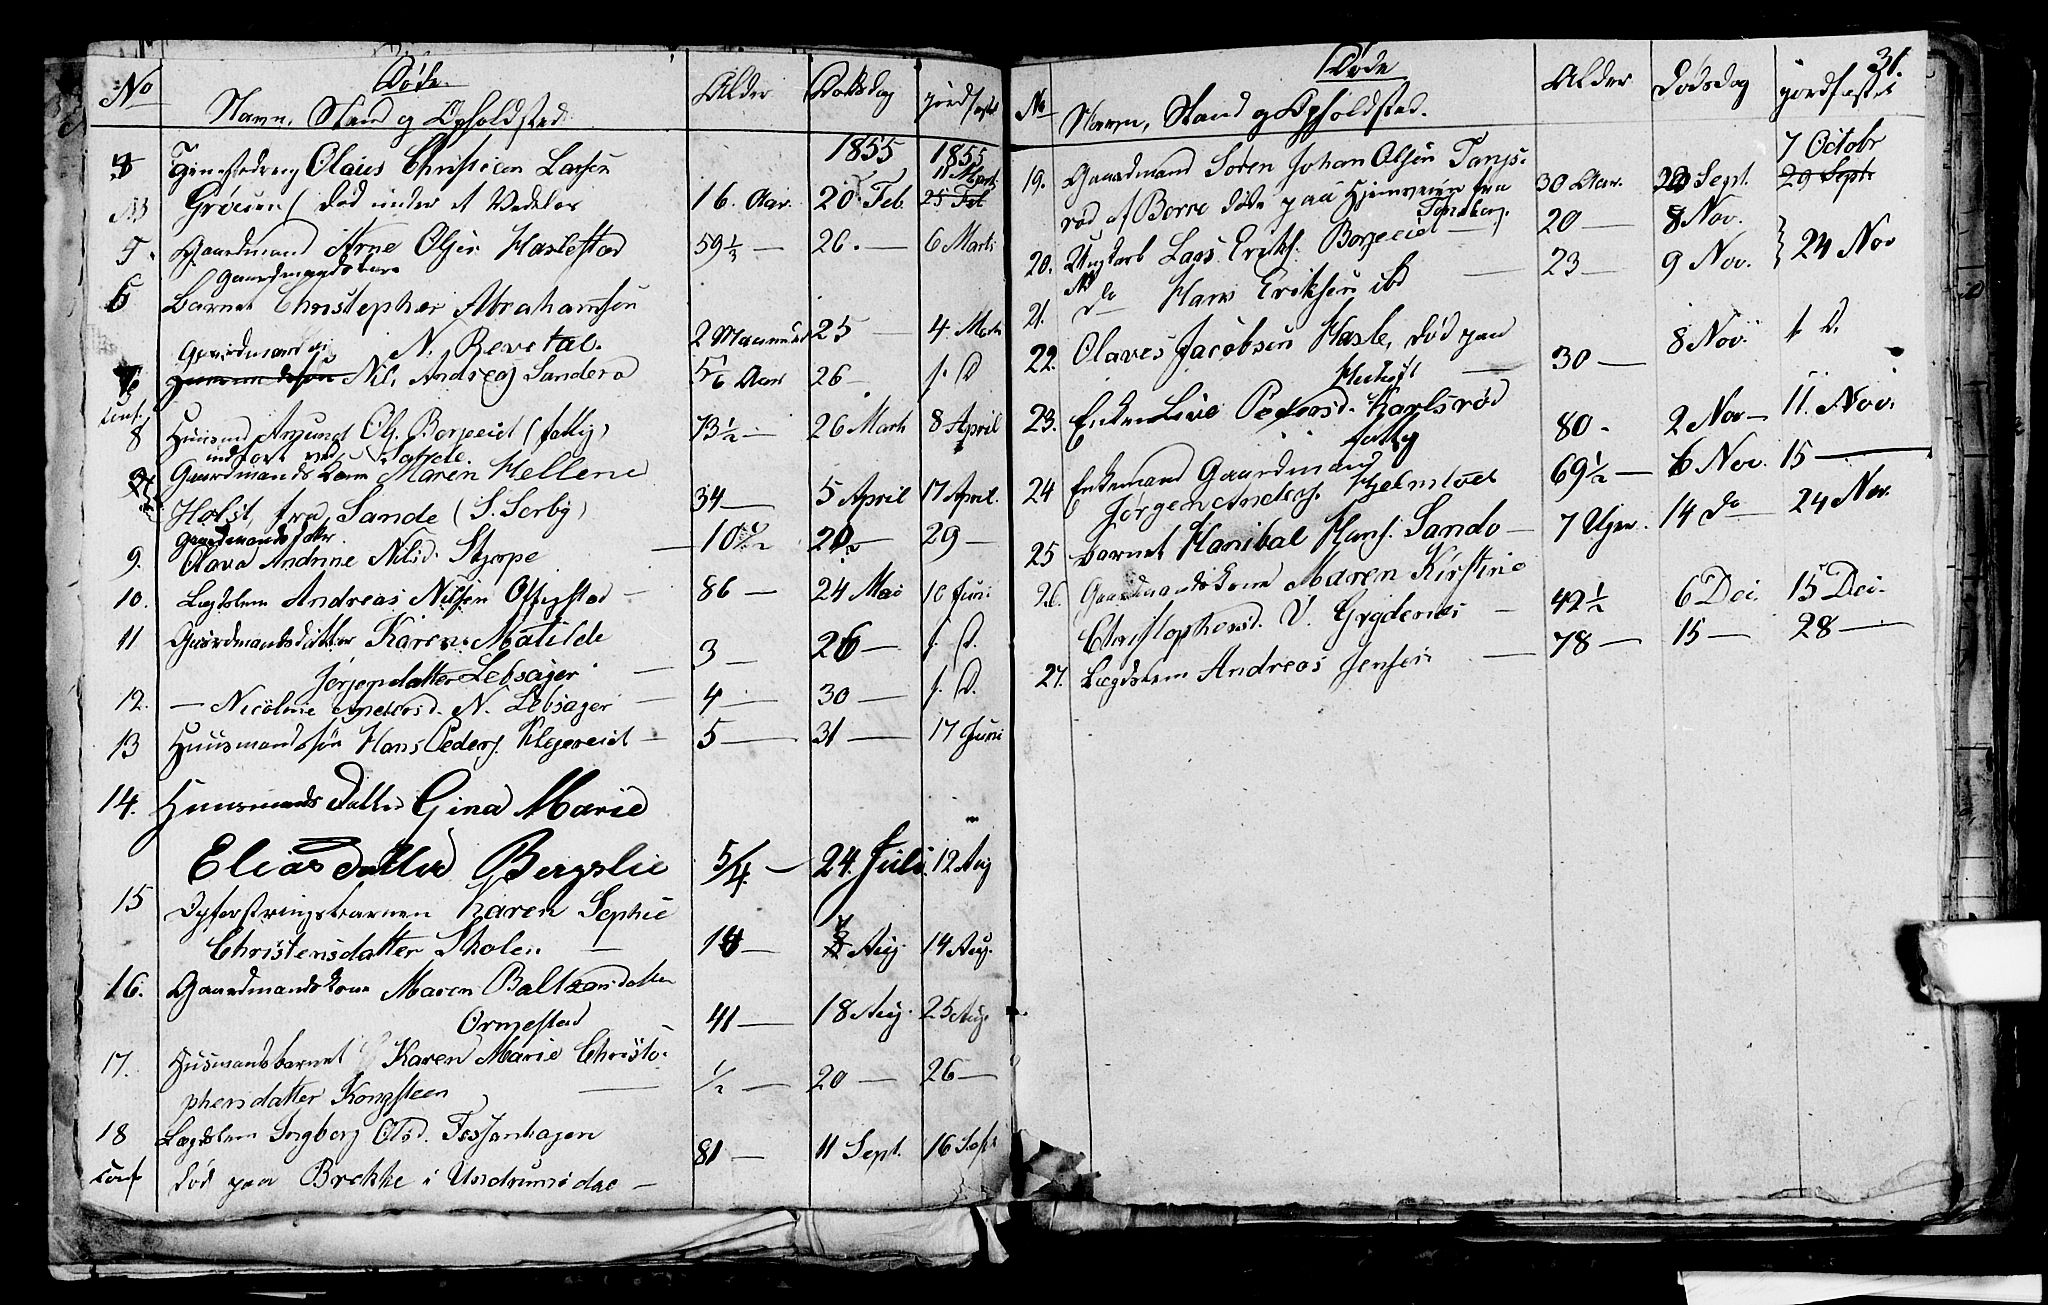 No
Døde
Navn, Stand og Opholdsted
Alder
Dødsdag
jordfæstet
1855
1855
11 Marts
4 Tjenestedreng Olaus Christian Larsen
NB Grøcien (død under et Vedelæs 16. Aar. 20 Feb. 25 Feb
5. Gaardmand Arne Olsen Haslestad 59 1/2 — 26. — 6 Marts
Gaardmands
6 Barnet Christopher Abrahamsen
N. Revetal. 2 Maaneder 25 — 4 Marts
Gaardmand
7 Nils Andreas Sandera 5/6 Aar 26 — s. D
8 Huusmd Amund Ols. Borgeeid (fattig) 73 1/2 — 26 Marts 8 April
indført ved
Gaardmandskone Maren Hellene
Holst, fra Sande (S. Serby) 34 — 5 April 17 April.
Gaardmandsdatter
9. Olava Andrine Nilsd. Styrpe — 10 1/2 20 — 29 —
10. Lægdslem Andreas Nilsen Offigstad — 86 — 24 Mai 10 Juni
11 Gaardmandsdatter Karen Matilde
Jørgendatter Lebsager — 3 — 26 — s. D.
12. — Nicoline Andersd. N. Lebsager — 4 — 30 — s. D.
13 Huusmandssøn Hans Peders. Klegereid — 5 — 31 — 17 Juni
14. Huusmands Datter Gina Marie
Eliasdatter Bergslie 5/4 — 24. Juli. 12 Aug
15 Opfostringsbarnet Karen Sophie
Christensdatter Skolen — 14 — 7 Aug. 14 Aug.
16. Gaardmandskone Maren Baltzersdatter
Ormestad 41 — 18 Aug. 25 Aug.
17. Husmandsbarnet Karen Marie Christo-
phersdatter Kongsteen — 1/2 — 20 — 26 —
18 Lægdslem Ingborg Olsd. Fossanhagen
Conf død paa Brekke i Undrumsdal — 81 — 11 Sept. 16 Sept
31.
No
Døde
Navn, Stand og Opholdsted.
Alder
Dødsdag
jordfæstet
7 Octobr
19. Gaardmand Søren Johan Olsen Tangs-
rød af Borre døde paa Hjemveien fra 30 Aar. 23 Sept. 29 Sept
Tønsberg.
20. Ungkarl Lars Eriks. Borgeeid — 20 — 8 Nov. 24 Nov
NB
21. do Hans Eriksen ibd — 23 — 9 Nov.
22. Olaves Jacobsen Hasle, død paa
— 30 — 8 Nov. s. D.
23. Enken Live Pedersd. Karlsrød
fattig 80 - 2 Nov — 11. Nov.
24 Enkemand Gaardmand
Jørgen Anders. Hjelmtvet 69 1/2 — 6 Nov. 15 —
25 Barnet Hanibal Hans. Sando — 7 Uger. 14 do — 24 Nov.
26. Gaardmandskone Maren Kirstine
Christophersd. V. Grydenes — 42 1/2 6 Dec. 15 Dec.
27. Lægdslem Andreas Jensen — 78 — 15 — 28 —